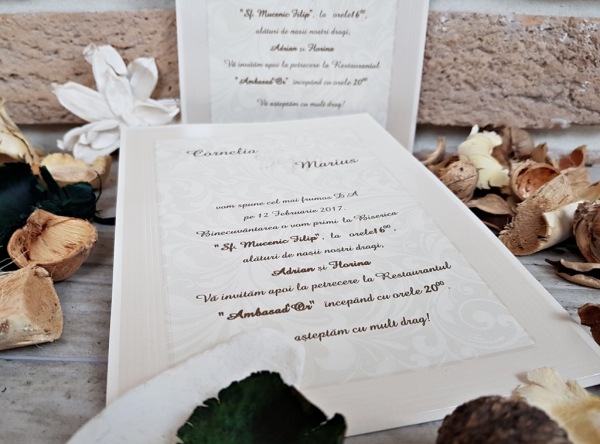 "Sf. Mucenic Filip", la orele16⁰⁰,
alături de nasii nostri dragi,
Adrian și Florina
Vă invităm apoi la petrecere la Restaurantul
"Ambasad'Or" începând cu orele 20⁰⁰
Vă așteptăm cu mult drag!
Cornelia
Marius
vom spune cel mai frumos DA
pe 12 Februarie 2017.
Binecuvântarea o vom primi la Biserica
"Sf. Mucenic Filip", la orele16⁰⁰,
alături de nasii nostri dragi,
Adrian și Florina
Vă invităm apoi la petrecere la Restaurantul
"Ambasad'Or" începând cu orele 20⁰⁰.
așteptăm cu mult drag!